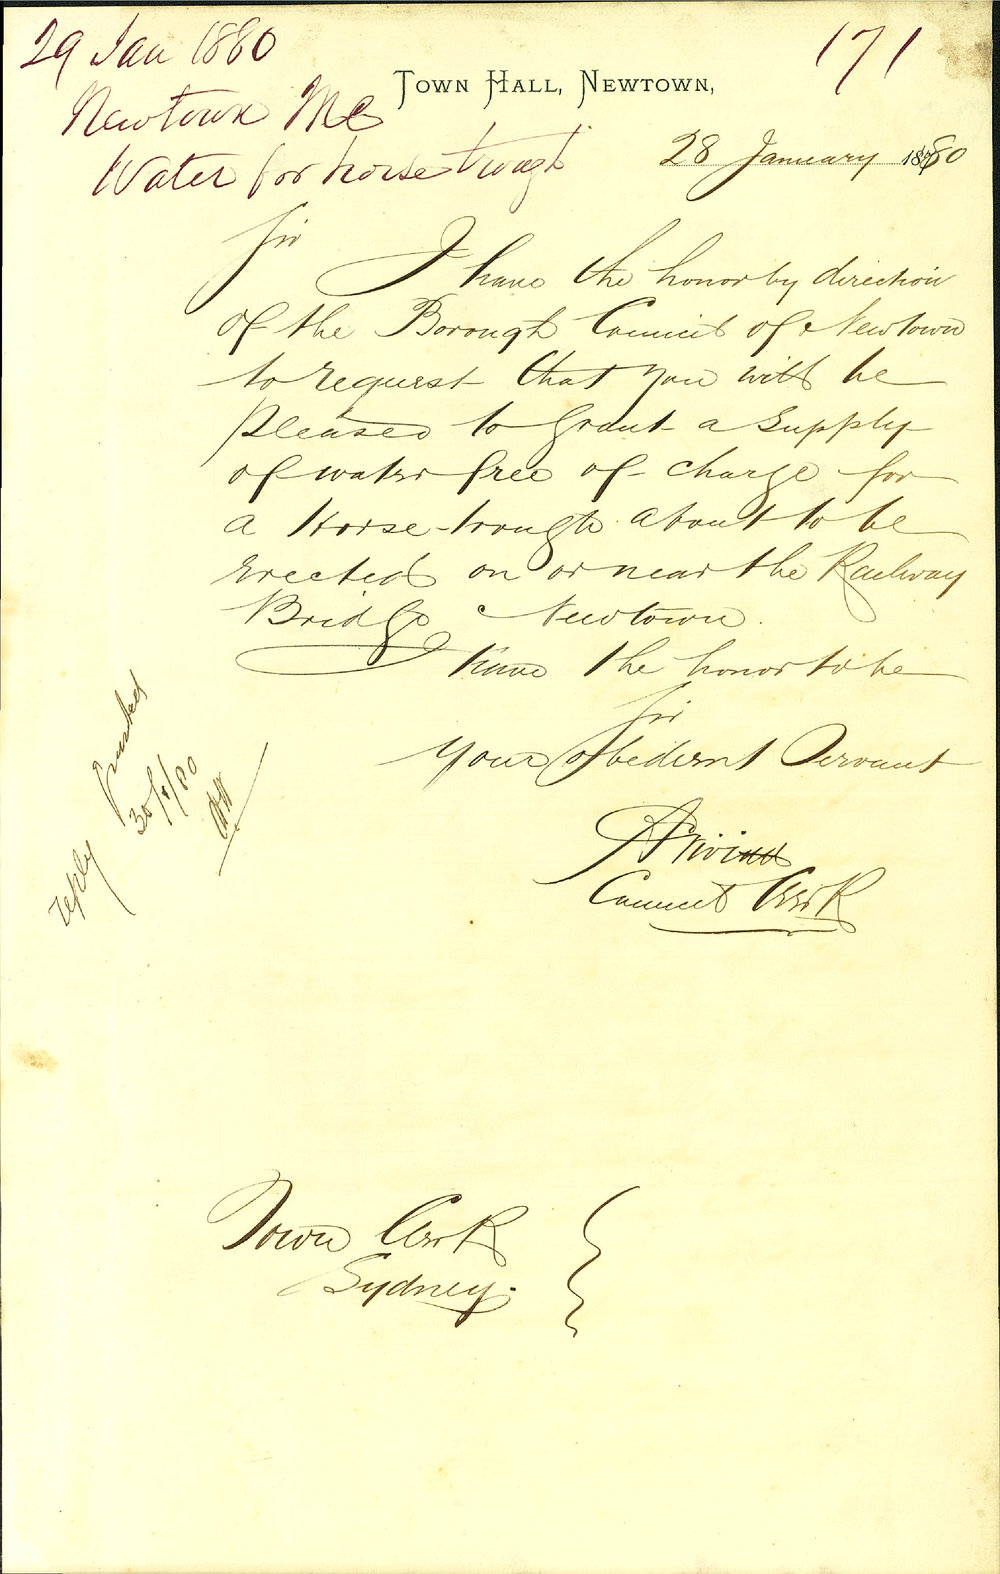 29 Jan 1880
171
Newtown MC
Water for horse trough
TOWN HALL, NEWTOWN,
28 January 1880
Sir
I have the honor by direction
of the Borough Council of Newtown
to request that you will be
pleased to grant a supply
of water free of charge for
a Horse-trough about to be
erected on or near the Railway
Bridge Newtown.
I have the honor to be
Sir
Your obedient Servant
Council Clerk
reply granted
30/1/80
Town Clerk
Sydney.